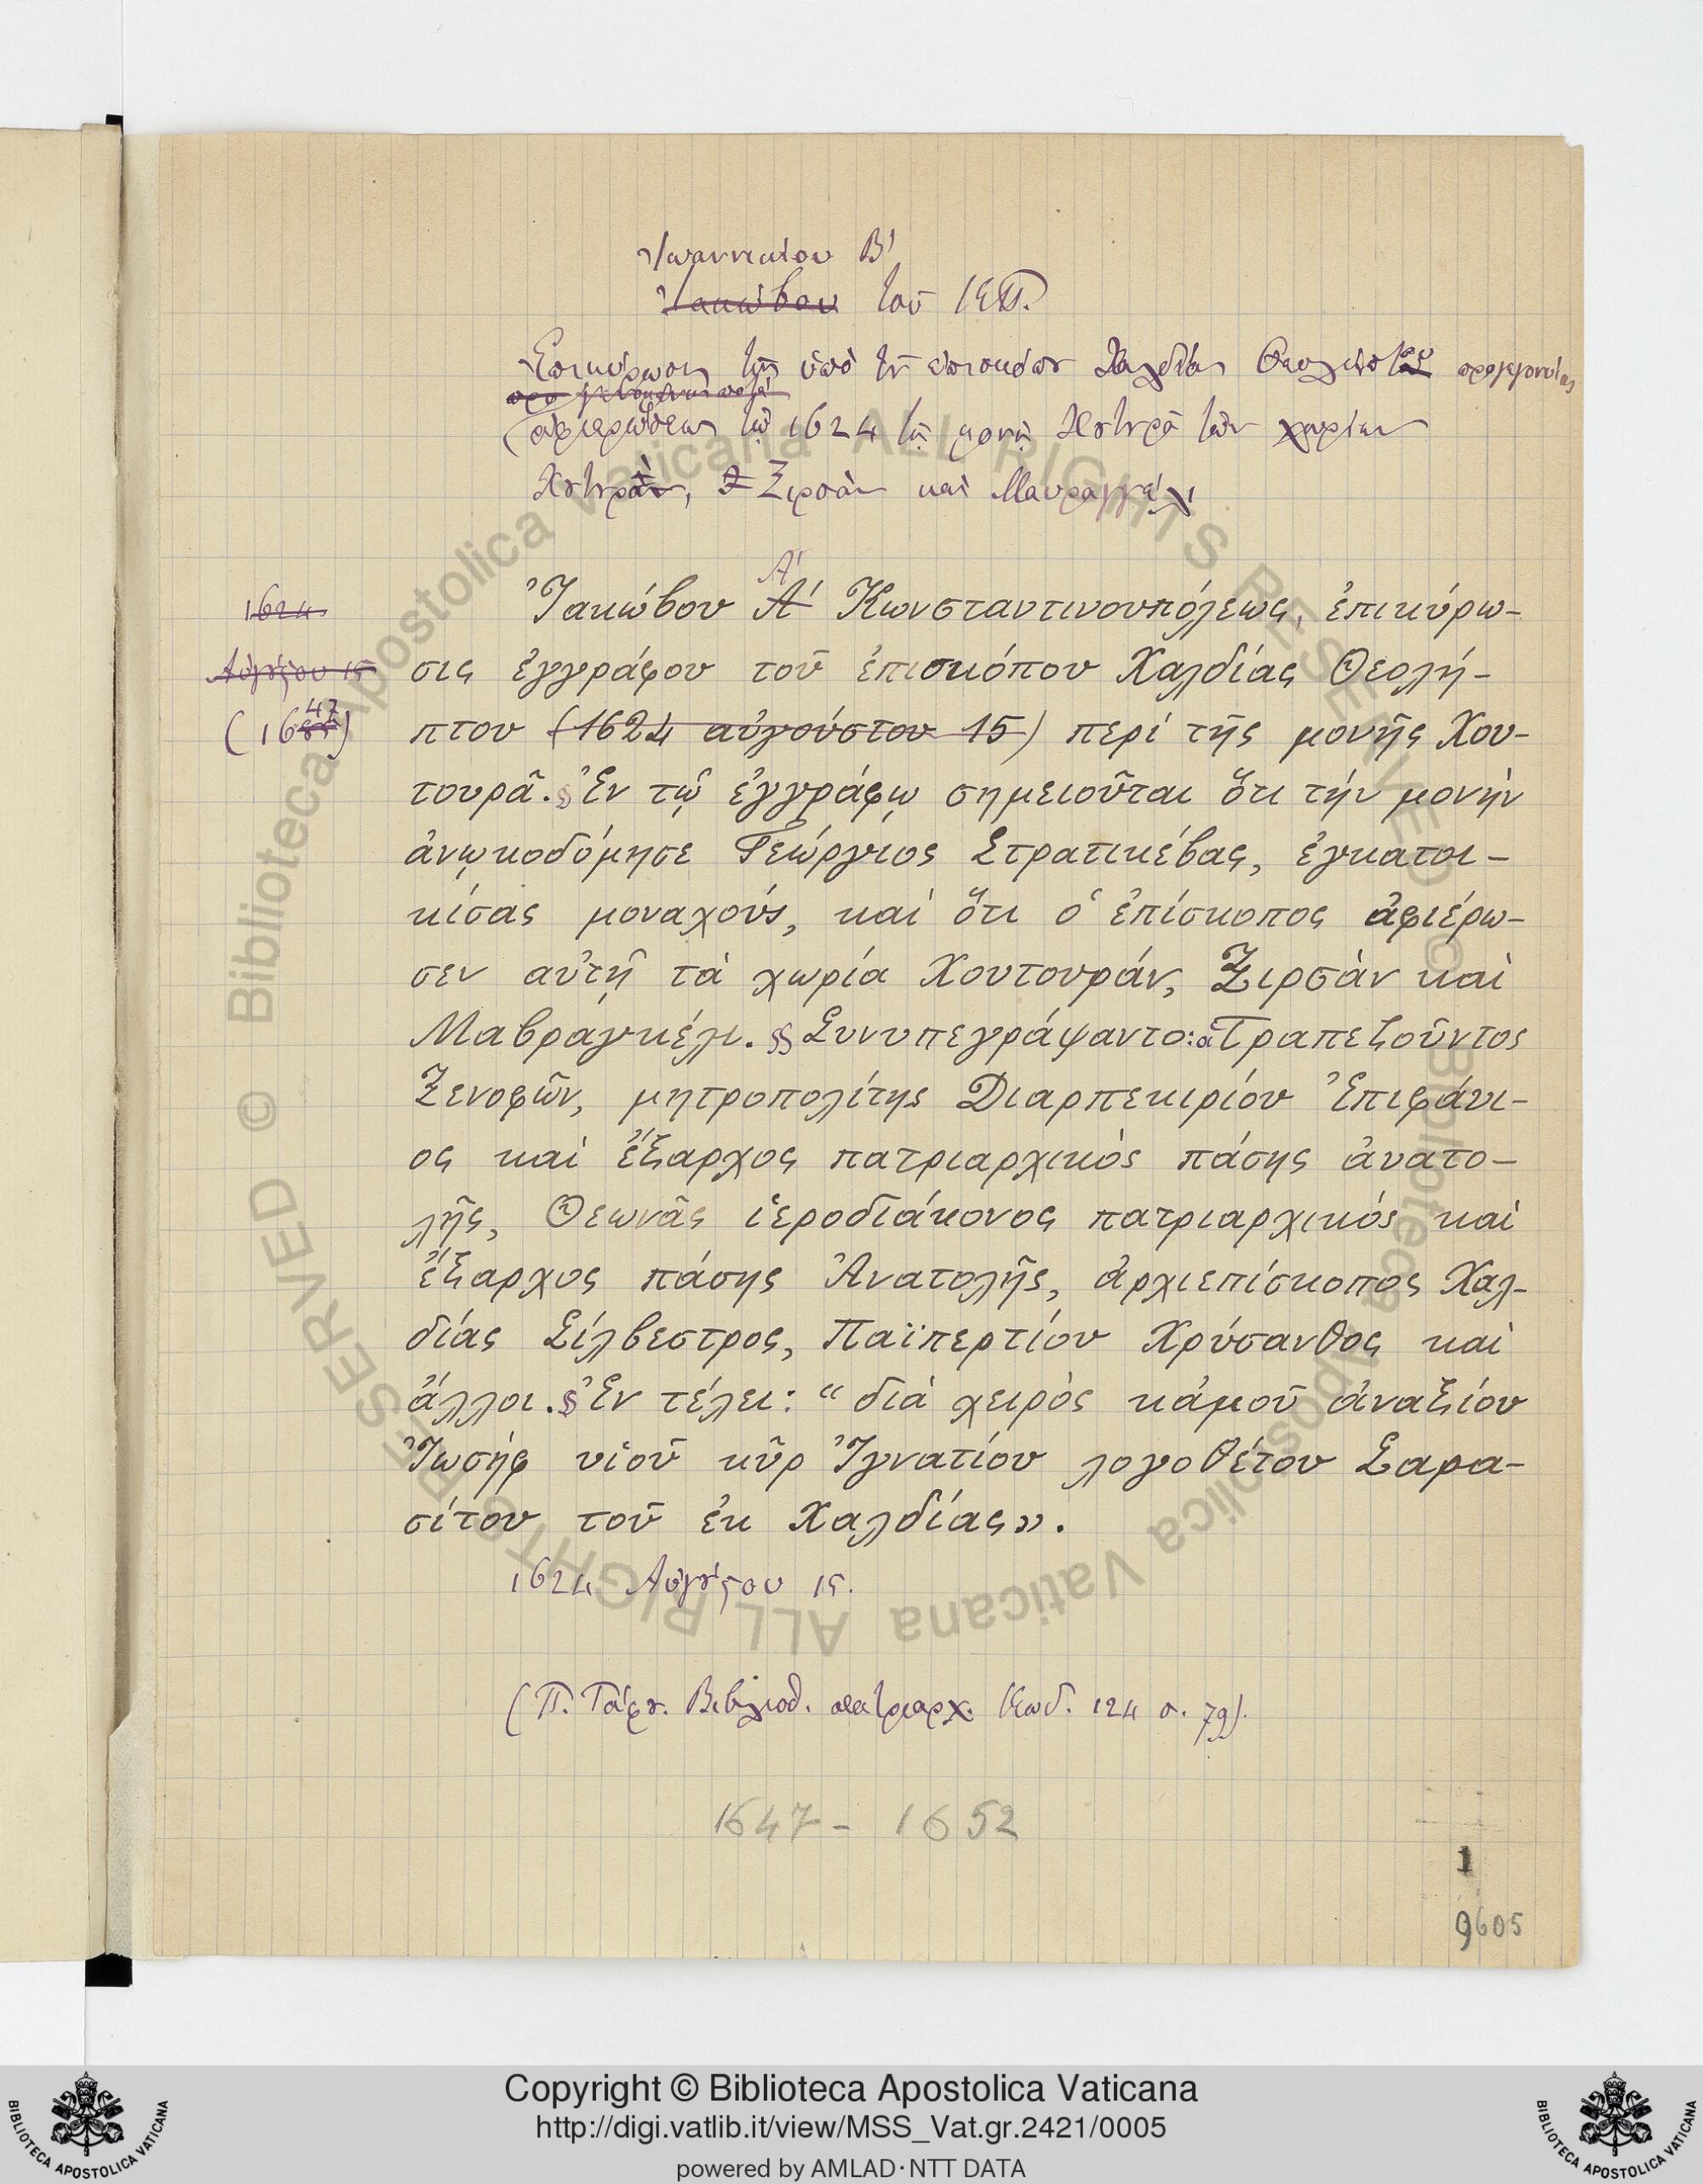 Ἰωαννικίου Β'
Ἰακώβου τοῦ ΚΠ.
Ἐπικύρωσις τῆς ὑπὸ τοῦ ἐπισκόπου Χαλδίας Θεολήπτου προγεγονυίας
ἀφιερώσεως τῷ 1624 τῇ μονῇ Χουτουρᾶ τῶν χωρίων
Χουτουρὰν, Ξιρσὰν καὶ Μαυραγγέλι
1624
Αὐγούστου 15
(1647)
Ἰακώβου Α' Κωνσταντινουπόλεως, ἐπικύρω-
σις ἐγγράφου τοῦ ἐπισκόπου Χαλδίας Θεολή-
πτου (1624 αὐγούστου 15) περί τῆς μονῆς Χου-
τουρᾶ. § Ἐν τῷ ἐγγράφῳ σημειοῦται ὅτι τήν μονὴν
ἀνῳκοδόμησε Γεώργιος Στρατικέβας, ἐγκατοι-
κίσας μοναχούς, καί ὅτι ὁ ἐπίσκοπος ἀφιέρω-
σεν αὐτῇ τὰ χωρία Χουτουράν, Ξιρσὰν καὶ
Μαβραγκέλι. §§ Συνυπεγράψαντο: ὁ Τραπεζοῦντος
Ξενοφῶν, μητροπολίτης Διαρπεκιρίου Ἐπιφάνι-
ος καὶ ἔξαρχος πατριαρχικὸς πάσης ἀνατο-
λῆς, Θεωνᾶς ἱεροδιάκονος πατριαρχικός καὶ
ἔξαρχος πάσης Ἀνατολῆς, ἀρχιεπίσκοπος Χαλ-
δίας Σίλβεστρος, Παϊπερτίου Χρύσανθος καὶ
ἄλλοι. § Ἐν τέλει: “διὰ χειρὸς κἀμοῦ ἀναξίου
Ἰωσήφ υἱοῦ κῦρ Ἰγνατίου λογοθέτου Σαρα-
σίτου τοῦ ἐκ Χαλδίας».
1624 Αὐγούστου 15.
(Π. Τάφου. Βιβλιοθ. πατριαρχ. Κωδ. 124 σ. 79).
1647 - 1652
1
9605
© Biblioteca Apostolica Vaticana ALL RIGHTS RESERVED © Biblioteca Apostolica Vaticana ALL RIGHTS RESERVED
Copyright © Biblioteca Apostolica Vaticana
http://digi.vatlib.it/view/MSS_Vat.gr.2421/0005
powered by AMLAD·NTT DATA
BIBLIOTECA APOSTOLICA VATICANA
BIBLIOTECA APOSTOLICA VATICANA